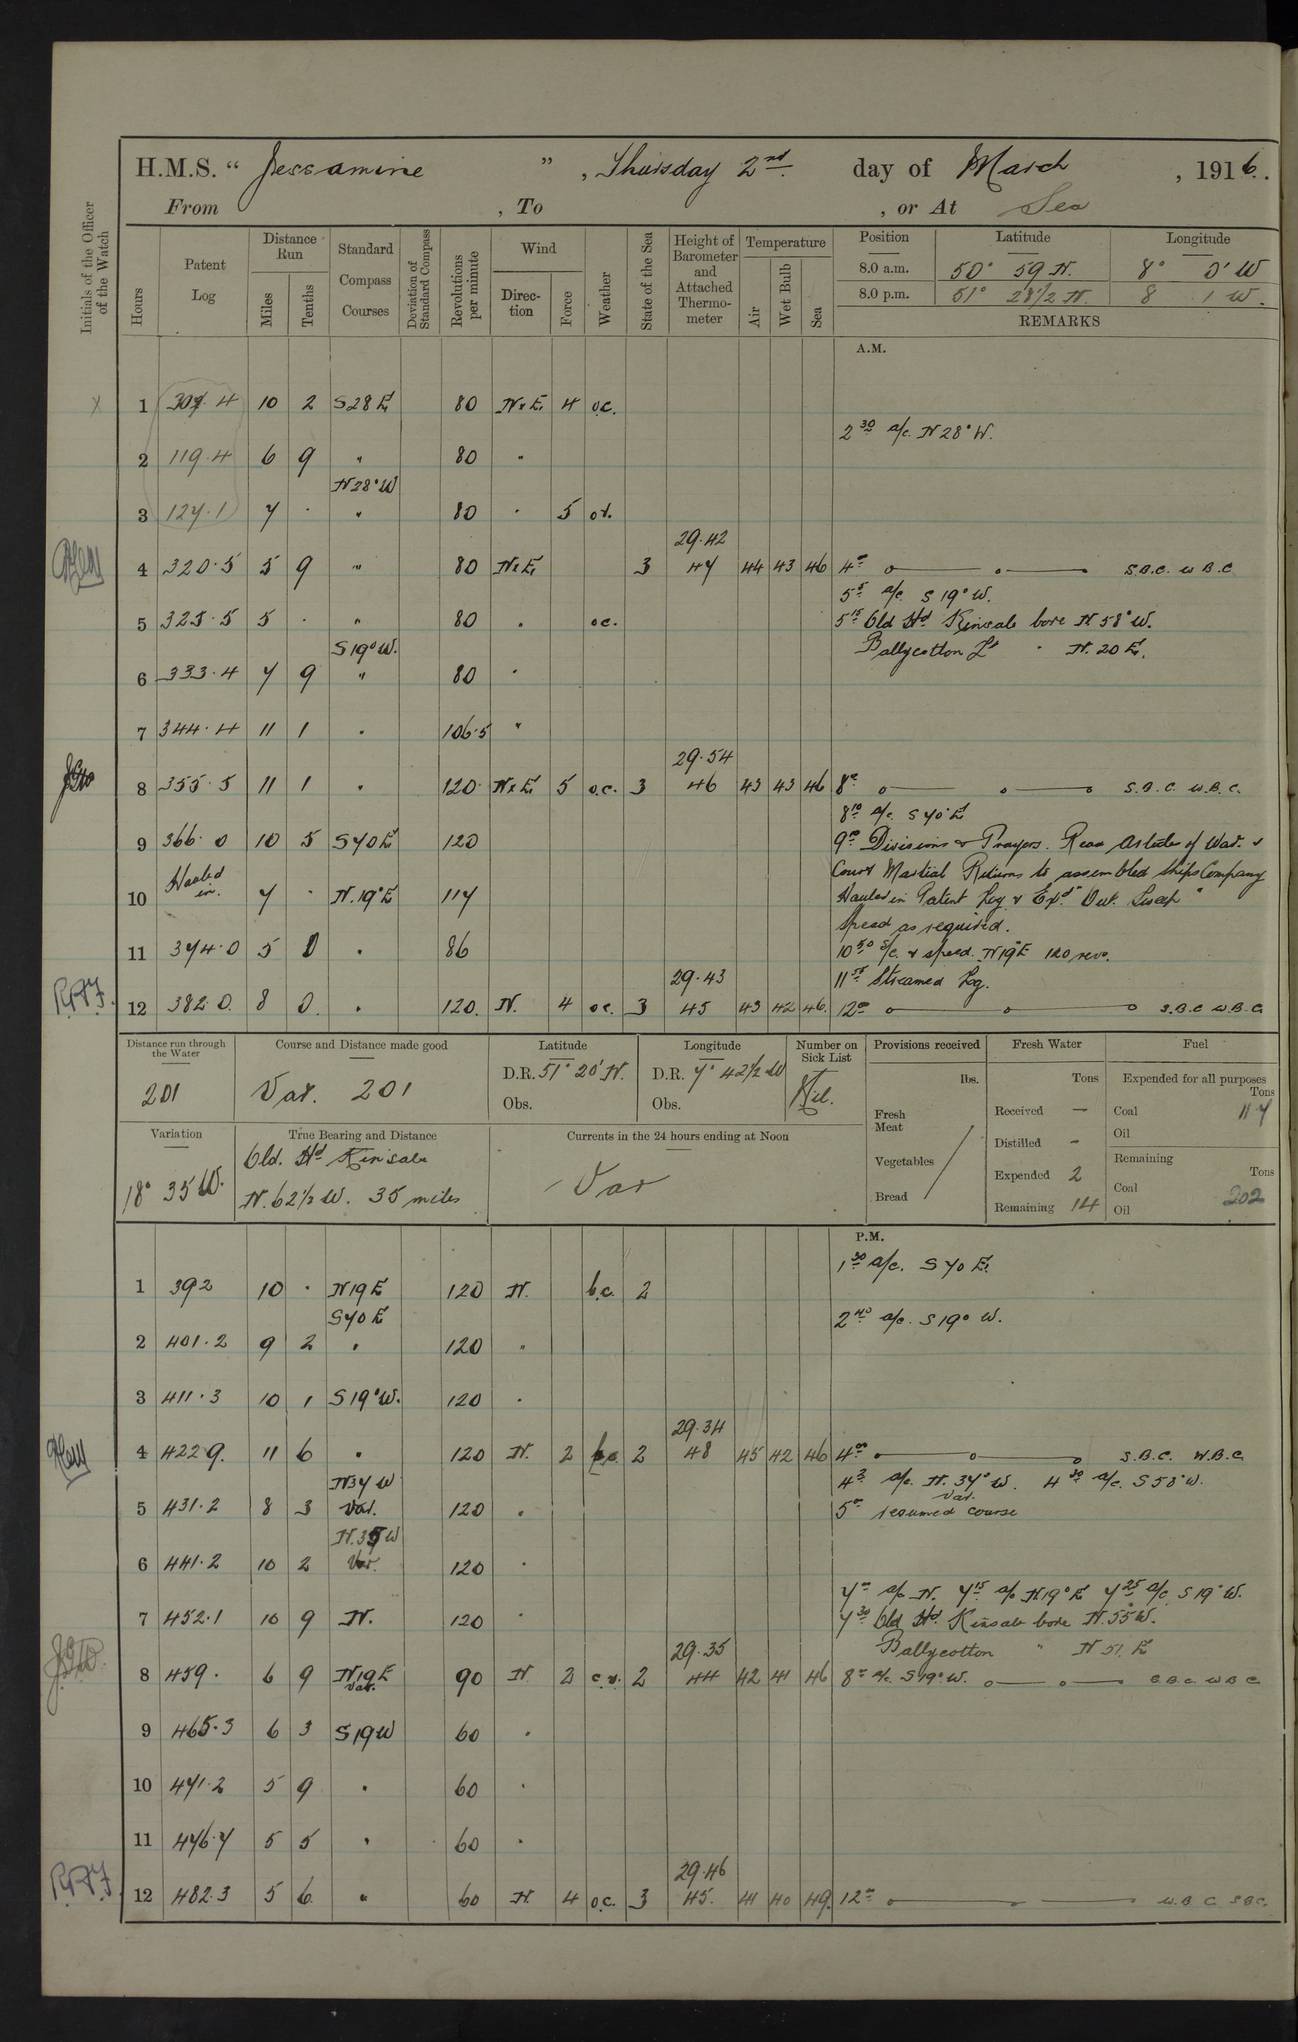 H.M.S. “ Jessamine ” , Thursday 2nd. day of March , 1916.
From , To , or At Sea
Initials of the Officer of the Watch
Hours
Patent Log
Distance Run
Miles
Tenths
Standard Compass Courses
Deviation of Standard Compass
Revolutions per minute
Wind
Direction
Force
Weather
State of the Sea
Height of Barometer and Attached Thermometer
Temperature
Air
Wet Bulb
Sea
Position Latitude Longitude
8.0 a.m. 50° 59 N. 8° 0' W
8.0 p.m. 51° 28 1/2 N. 8 1 W.
REMARKS
A.M.
1 307.4 10 2 S28E 80 NxE. 4 o.c.
2 30 a/c. N28°W.
2 119.4 6 9 " 80 "
N28°W
3 127.1 7 . " 80 " 5 or.
29.42
4 320.5 5 9 " 80 NxE. 3 47 44 43 46 4 00 S.B.C. W B.C
5 5 a/c. S 19° W.
5 325.5 5 . " 80 " oc. 5 15 Old Hd Kinsale bore N 58° W.
S19°W. Ballycotton Lt " N. 20 E.
6 333.4 7 9 " 80 "
7 344.4 11 1 " 106.5 "
29.54
8 355.5 11 1 " 120. NxE 5 o.c. 3 46 43 43 46 8 00 S.B.C. W.B.C.
8 10 a/c. S 70° E
9 366.0 10 5 S70E 120 9 00 Divisions & Prayers. Read Articles of War. &
Court Martial Returns to assembled Ships Company
10 Hauled in. 7 . N.19°E 117 Hauled in Patent Log & Expd
Speed as required.
11 374.0 5 0 " 86 10 50 a/c. & speed. N19°E 120 revs.
29.43 11 Streamed Log.
12 382.0. 8 0. " 120. N. 4 oc. 3 45 43 42 46. 12 00 S.B.C W.B.C.
Distance run through the Water
201
Course and Distance made good
Var. 201
Latitude
D.R. 51° 20' N.
Obs.
Longitude
D.R. 7° 42 1/2 W
Obs.
Number on Sick List
Nil.
Provisions received
lbs.
Fresh Meat
Vegetables
Bread
Fresh Water
Tons
Received —
Distilled -
Expended 2
Remaining 14
Fuel
Expended for all purposes
Tons
Coal 117
Oil
Remaining
Tons
Coal 202
Oil
Variation
18° 35 W.
True Bearing and Distance
Old. Hd Kinsale
N. 62 1/2 W. 35 miles
Currents in the 24 hours ending at Noon
Var
P.M.
1 30 a/c. S 70 E.
1 392 10 . N19E 120 N. b.c. 2
S70E 2 40 a/c. S 19° W.
2 401.2 9 2 " 120 "
3 411.3 10 1 S19°W. 120 "
29.34
4 422 9. 11 6 " 120 N. 2 b.c. 2 48 45 42 46 4 00 S.B.C. W.B.C.
N37W 4 a/c. N. 37° W. 4 30 a/c. S 58° W.
5 431.2 8 3 var. 120 " 5 00 resumed var. course
N.37W
6 441.2 10 2 Var. 120 "
7 00 a/c N. 7 15 a/c N19°E 7 25 a/c. S 19° W.
7 452.1 10 9 N. 120 " 7 30 Old Hd Kinsale bore N. 55° W.
29.35 Ballycotton " N 51. E
8 459. 6 9 N19E var. 90 N 2 c.r. 2 44 42 41 46 8 00 a/c. S19°W. S.B.C W B C
9 465.3 6 3 S19W 60 "
10 471.2 5 9 " 60 "
11 476.7 5 5 " 60 "
29.46
12 482.3 5 6 " 60 N. 4 o.c. 3 45. 41 40 49. 12 00 W.B C S B C.